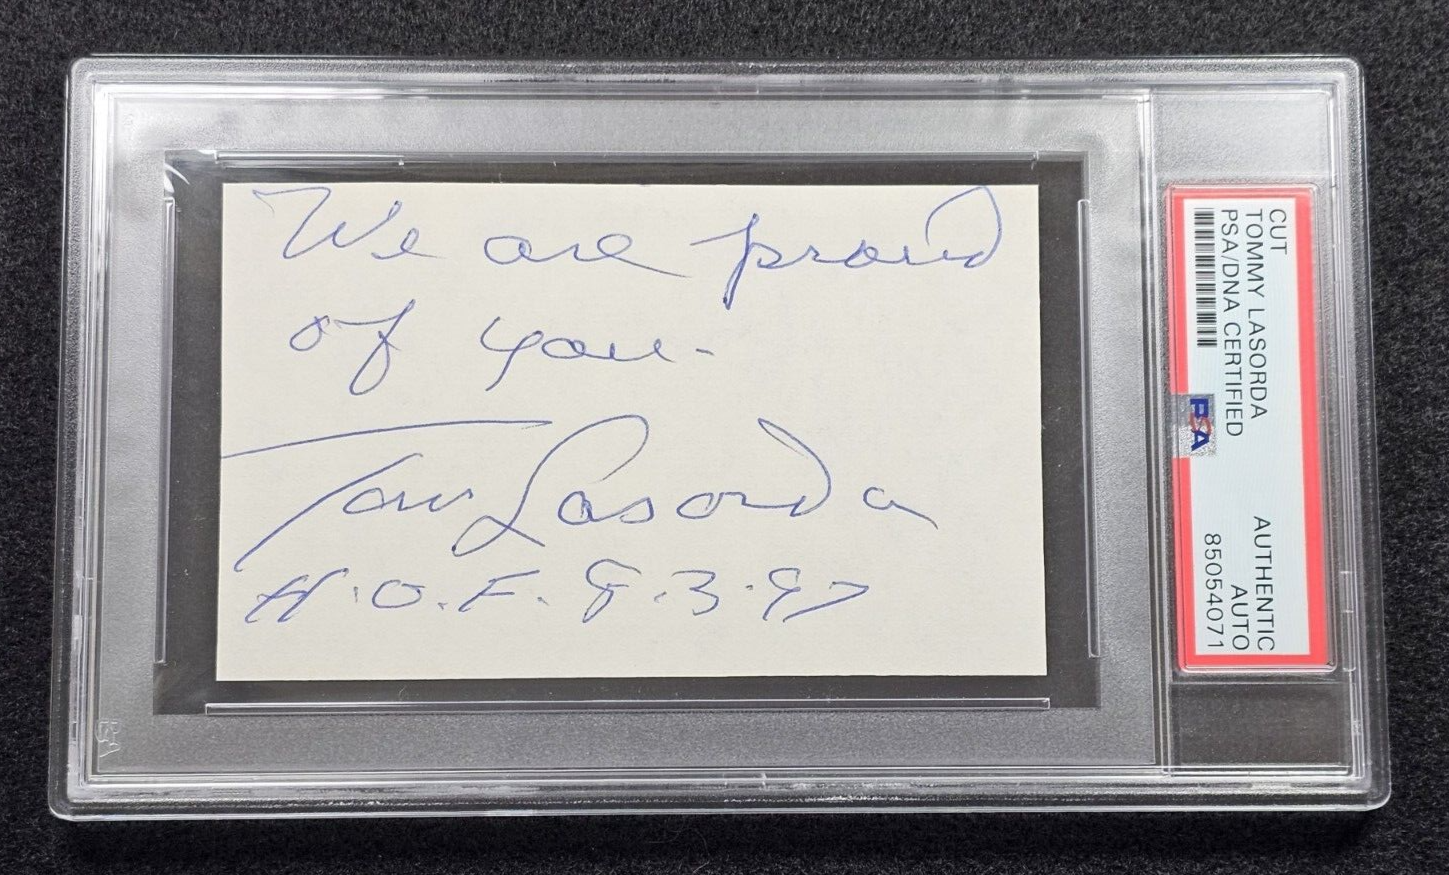 We are proud
of you-
Tom Lasorda
H.O.F. 8.3.97
CUT
TOMMY LASORDA
PSA/DNA CERTIFIED
AUTHENTIC
AUTO
85054071
PSA